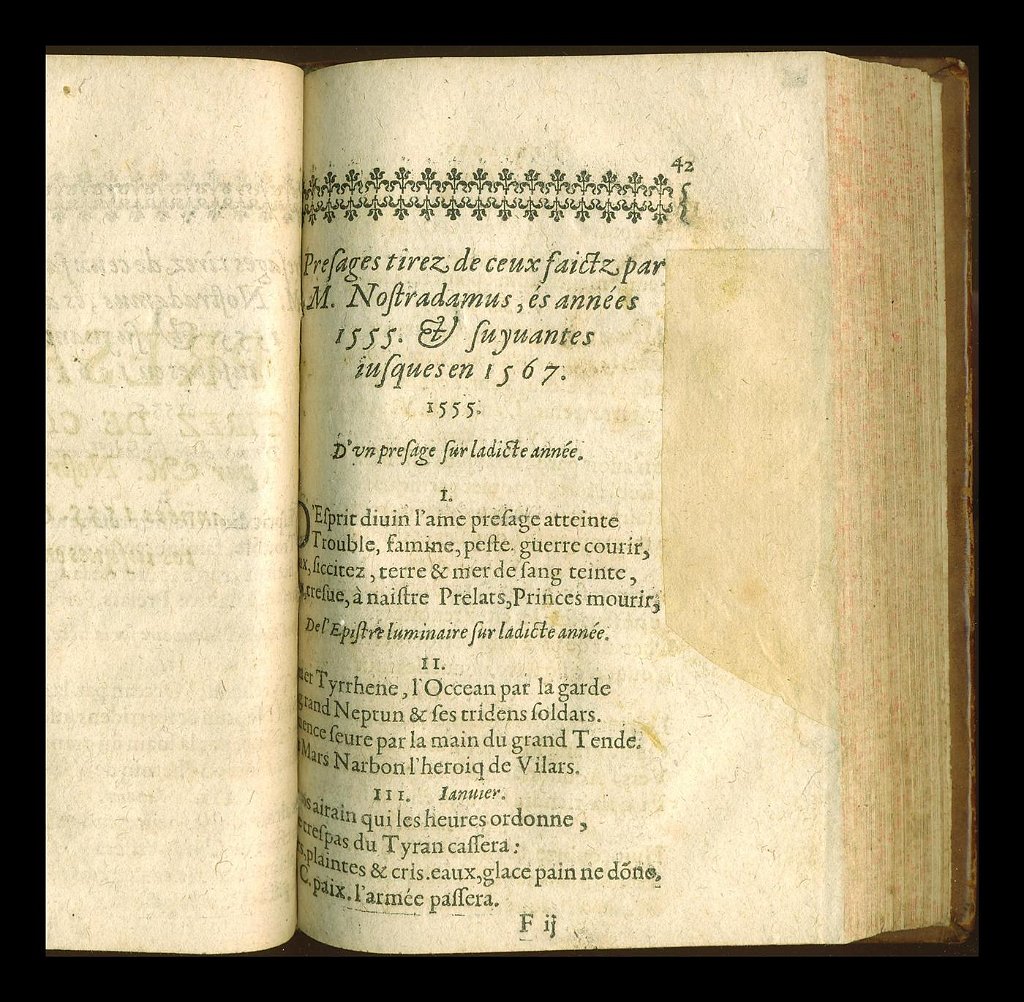 42
Preſages tirez de ceux faictz par
M. Noſtradamus, és années
1555. & ſuyuantes
iuſques en 1567.
1555.
D'vn preſage ſur ladicte année.
I.
D'Eſprit diuin l'ame preſage atteinte
Trouble, famine, peſte. guerre courir,
ſiccitez, terre & mer de ſang teinte,
treſue, à naiſtre Prelats, Princes mourir;
De l'Epiſtre luminaire ſur ladicte année.
II.
Tyrrhene, l'Occean par la garde
grand Neptun & ſes tridens ſoldars.
ſeure par la main du grand Tende.
Mars Narbon l'heroiq de Vilars.
III. Ianuier.
airain qui les heures ordonne,
treſpas du Tyran caſſera:
plaintes & cris. eaux, glace pain ne dõne,
C. paix. l'armée paſſera.
F ij